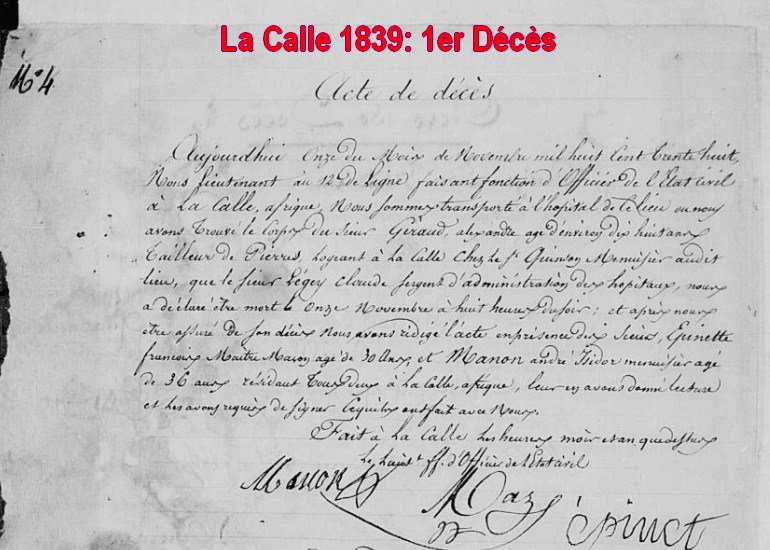 La Calle 1839: 1er Décès
No 4
Acte de décès
Aujourdhui Onze du Mois de Novembre mil huit Cent Trente huit,
Nous Lieutenant au 12e de Ligne faisant fonction d'Officier de l'Etat Civil
à La Calle, afrique, Nous sommes transporté à l'hopital de Ce lieu ou nous
avons Trouvé le Corps du Sieur Géraud, alexandre age d'environ dix huit ans
Tailleur de Pierres, Logeant à La Calle Chez le Sr Menuisier audit
lieu, que le Sieur Légey Claude Sergent d'administration des hopitaux, nous
a déclaré être mort le Onze Novembre à huit heures du soir; et après nous
être assuré De son décès Nous avons rédigé l'acte en présence des Sieurs, Epinette
francois Maitre Macon age de 30 Ans, et Manon andré Isidor menuisier agé
de 36 ans résidant Tous deux à La Calle, afrique, leur en avons donné lecture
et les avons requis de signer Ce qu'ils ont fait avec Nous.
Fait à La Calle Les heures, mois et an que dessus
Le Lieutt. ff. d'Officier de l'Etat Civil
Manon
Maz
épinet